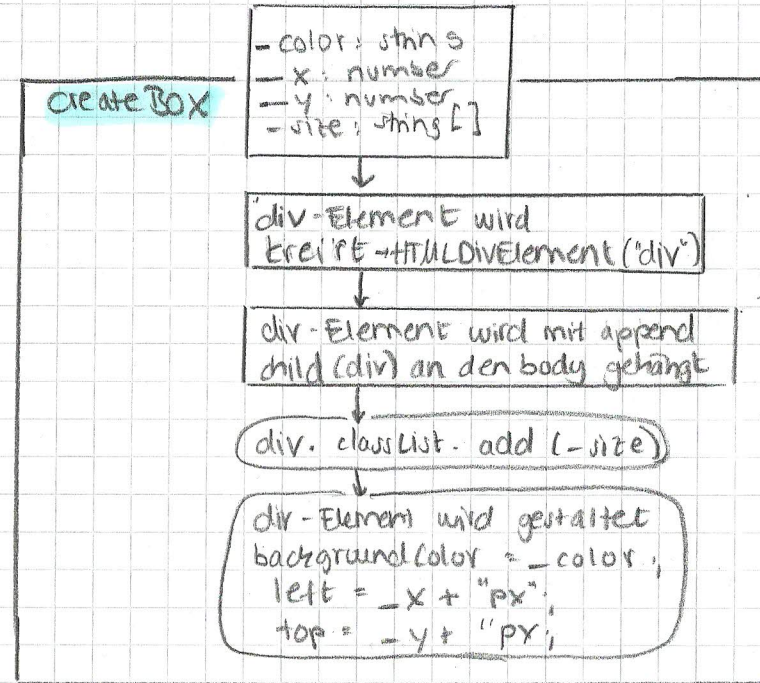 _color: string
_x: number
_y: number
-size: string[]
createBox
div-Element wird
kreirt → HTMLDivElement ("div")
div-Element wird mit append
child (div) an den body gehängt
div. classList. add (-size)
div-Element wird gestaltet
backgroundColor = _color;
left = _x + "px";
top = _y + "px;